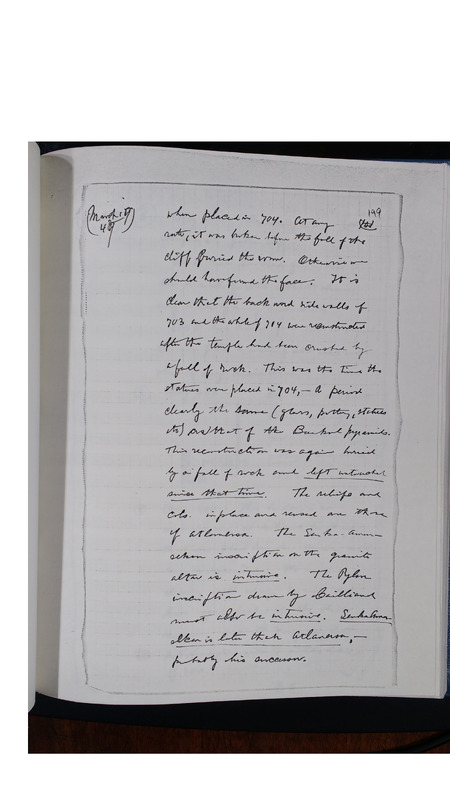 199
(March 19)
when placed in 704. At any
rate, it was broken before the fall of the
cliff buried the room. Otherwise we
should have found the face. It is
clear that the back and side walls of
703 and the whole of 704 were reconstructed
after the temple had been crushed by
a fall of rock. This was the time the
statues were placed in 704, – a period
clearly the same (glass, pottery, statues
etc) as that of the Barkal pyramids.
This reconstruction was again buried
by a fall of rock and left untouched
since that time. The reliefs and
cols. in place and reused are those
of Atlanersa. The Senka-Aman-
seken inscription on the granite
altar is intrusive. The Pylon
inscription drawn by Cailliaud
must also be intrusive. Senkaman-
seken is later than Atlanersa, –
probably his successor.